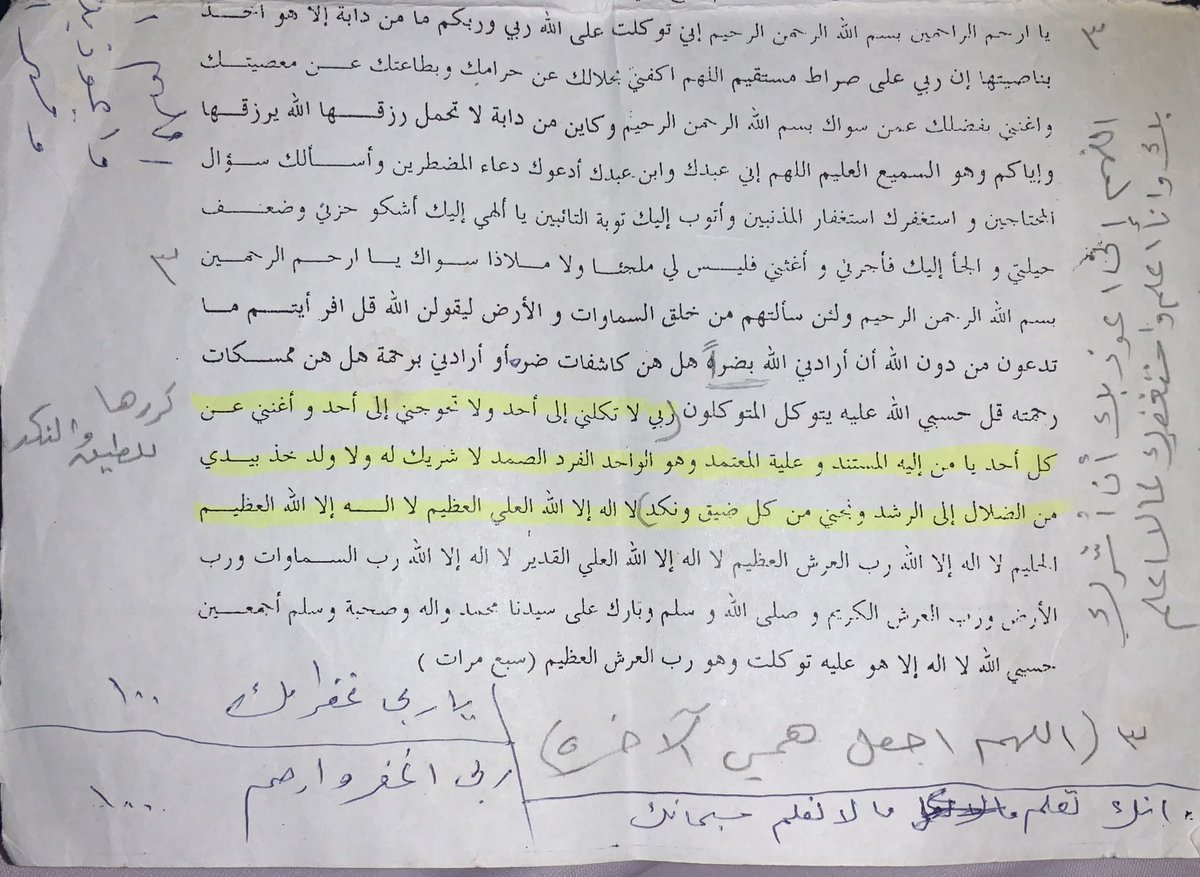 يا ارحم الراحمين بسم الله الرحمن الرحيم إني توكلت على الله ربي وربكم ما من دابة إلا هو آخذ
بناصيتها إن ربي على صراط مستقيم اللهم اكفني بحلالك عن حرامك وبطاعتك عن معصيتك
واغنني بفضلك عمن سواك بسم الله الرحمن الرحيم وكاين من دابة لا تحمل رزقها الله يرزقها
وإياكم وهو السميع العليم اللهم إني عبدك وابن عبدك أدعوك دعاء المضطرين وأسألك سؤال
المحتاجين و استغفرك استغفار المذنبين وأتوب إليك توبة التائبين يا ألهي إليك أشكو حزني وضعف
حيلتي و الجأ إليك فأجرني و أغثني فليس لي ملجئا ولا ملاذا سواك يا ارحم الرحمين
بسم الله الرحمن الرحيم ولئن سألتهم من خلق السماوات و الأرض ليقولن الله قل افر أيتم ما
تدعون من دون الله أن أرادني الله بضر هل هن كاشفات ضره أو أرادني برحمة هل هن ممسكات
رحمته قل حسبي الله عليه يتوكل المتوكلون (ربي لا تكلني إلى أحد ولا تحوجني إلى أحد و أغنني عن
كل أحد يا من إليه المستند و علية المعتمد وهو الواحد الفرد الصمد لا شريك له ولا ولد خذ بيدي
من الضلال إلى الرشد ونجني من كل ضيق ونكد) لا اله إلا الله العلي العظيم لا اله إلا الله العظيم
الحليم لا اله إلا الله رب العرش العظيم لا اله إلا الله العلي القدير لا اله إلا الله رب السماوات ورب
الأرض ورب العرش الكريم و صلى الله و سلم وبارك على سيدنا محمد واله وصحبة وسلم أجمعين
حسبي الله لا اله إلا هو عليه توكلت وهو رب العرش العظيم (سبع مرات )
٣
اللهم إني اعوذ بك أن أشرك
بك وانا أعلم واستغفرك لما لا اعلم
٣
كررها
للطيق والنكد
يا ربي غفرانك ١٠٠
ربي اغفر وارحم ١٠٠
٣ (اللهم اجعل همي الآخرة)
انك تعلم ما لا نعلم سبحانك